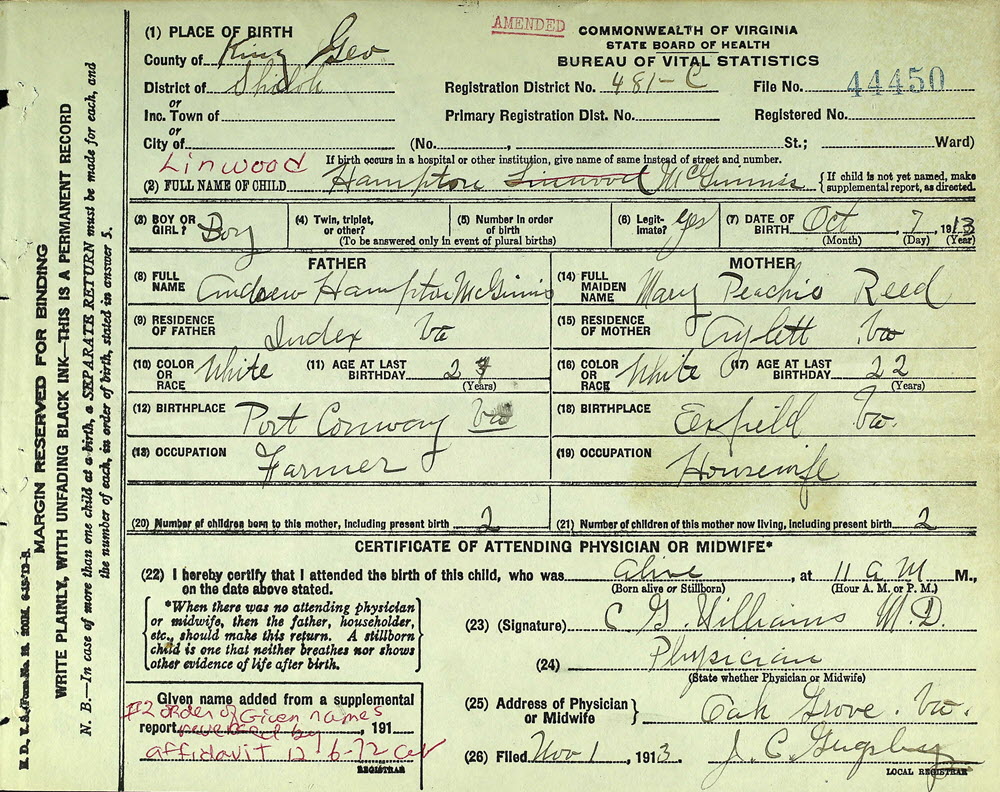 AMENDED
COMMONWEALTH OF VIRGINIA
STATE BOARD OF HEALTH
BUREAU OF VITAL STATISTICS
(1) PLACE OF BIRTH
County of King Geo
District of Shiloh
or
Inc. Town of
or
City of
Registration District No. 481-C
File No. 44450
Primary Registration Dist. No.
Registered No.
(No. , St.; Ward)
If birth occurs in a hospital or other institution, give name of same instead of street and number.
Linwood
(2) FULL NAME OF CHILD Hampton Linwood McGinnis {If child is not yet named, make supplemental report, as directed.
(3) BOY OR GIRL? Boy
(4) Twin, triplet, or other?
(5) Number in order of birth
(To be answered only in event of plural births)
(6) Legit- imate? yes
(7) DATE OF BIRTH Oct 7, 1913
(Month) (Day) (Year)
FATHER
(8) FULL NAME Andrew Hampton McGinnis
(9) RESIDENCE OF FATHER Index Va
(10) COLOR OR RACE White
(11) AGE AT LAST BIRTHDAY 27
(Years)
(12) BIRTHPLACE Port Conway Va
(13) OCCUPATION Farmer
MOTHER
(14) FULL MAIDEN NAME Mary Peachie Reed
(15) RESIDENCE OF MOTHER Aylett Va
(16) COLOR OR RACE White
(17) AGE AT LAST BIRTHDAY 22
(Years)
(18) BIRTHPLACE Va.
(19) OCCUPATION Housewife
(20) Number of children born to this mother, including present birth 2
(21) Number of children of this mother now living, including present birth 2
CERTIFICATE OF ATTENDING PHYSICIAN OR MIDWIFE*
(22) I hereby certify that I attended the birth of this child, who was alive, at 11 a M M.,
on the date above stated.
(Born alive or Stillborn) (Hour A. M. or P. M.)
{*When there was no attending physician
or midwife, then the father, householder,
etc., should make this return. A stillborn
child is one that neither breathes nor shows
other evidence of life after birth.}
(23) (Signature) C G. Williams M.D.
(24) Physician
(State whether Physician or Midwife)
(25) Address of Physician or Midwife} Oak Grove. Va.
(26) Filed Nov 1, 1913. J. C.
LOCAL REGISTRAR
Given name added from a supplemental
#2 order of Given names
report reversed by, 191
affidavit 12-6-72
REGISTRAR
MARGIN RESERVED FOR BINDING
WRITE PLAINLY, WITH UNFADING BLACK INK—THIS IS A PERMANENT RECORD
N. B.—In case of more than one child at a birth, a SEPARATE RETURN must be made for each, and
the number of each, in order of birth, stated in answer 5.